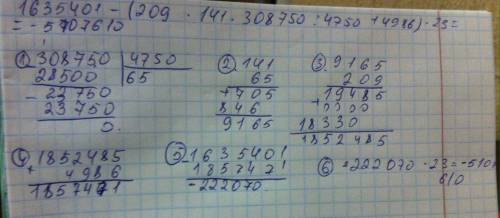 1635401 - (209 · 141 · 308750 : 4750 + 4986) · 23 =
= -5107610
① 308750 | 4750
28500 | 65
- 23750
23750
0.
② 141
65
+ 705
846
9165
③ 9165
209
+ 19485
0000
18330
1852485
④ 1852485
+ 4986
1857471
⑤ 1635401
1857471
-222070.
⑥ -222070 · 23 = -5101
610